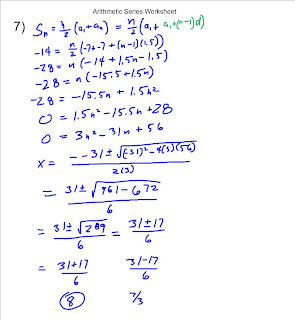 Arithmetic Series Worksheet
7) Sₙ = n/2 (a₁+aₙ) = n/2 (a₁ + a₁+(n-1)d)
-14 = n/2 (-7+-7+(n-1)(1.5))
-28 = n (-14 + 1.5n - 1.5)
-28 = n (-15.5 + 1.5n)
-28 = -15.5n + 1.5n²
0 = 1.5n² - 15.5n + 28
0 = 3n² - 31n + 56
x = (- -31 ± √((-31)² - 4(3)(56))) / 2(3)
= (31 ± √(961 - 672)) / 6
= (31 ± √289) / 6 = (31 ± 17) / 6
= (31+17) / 6 (31-17) / 6
8 7/3